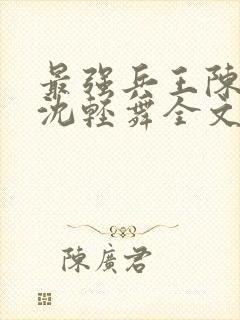 最强兵王陈
沈轻舞全文
陳廣君